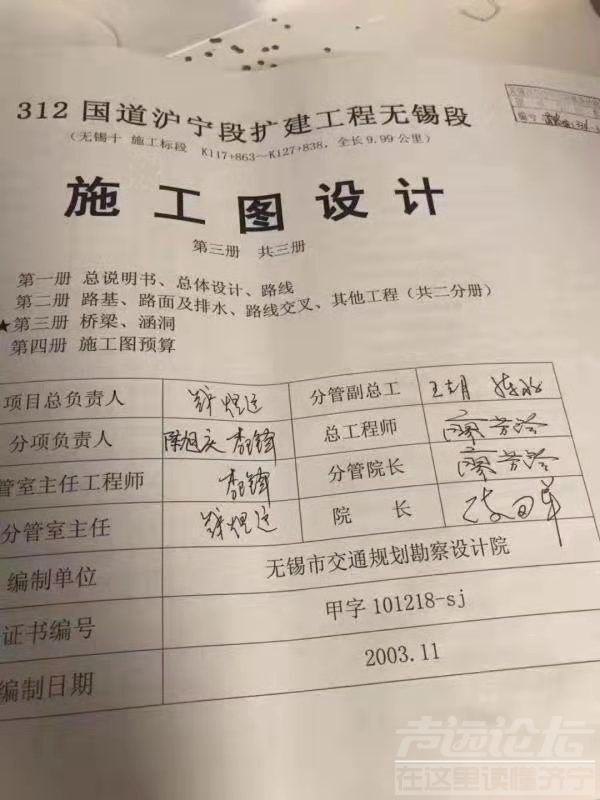 312国道沪宁段扩建工程无锡段
(无锡十 施工标段 K117+863~K127+838, 全长9.99公里)
施工图设计
第三册 共三册
第一册 总说明书、总体设计、路线
第二册 路基、路面及排水、路线交叉、其他工程(共二分册)
★第三册 桥梁、涵洞
第四册 施工图预算
项目总负责人 分管副总工
分项负责人 李锋 总工程师
管室主任工程师 李锋 分管院长
分管室主任 院 长
编制单位 无锡市交通规划勘察设计院
证书编号 甲字101218-sj
编制日期 2003.11
声远论坛
在这里读懂济宁